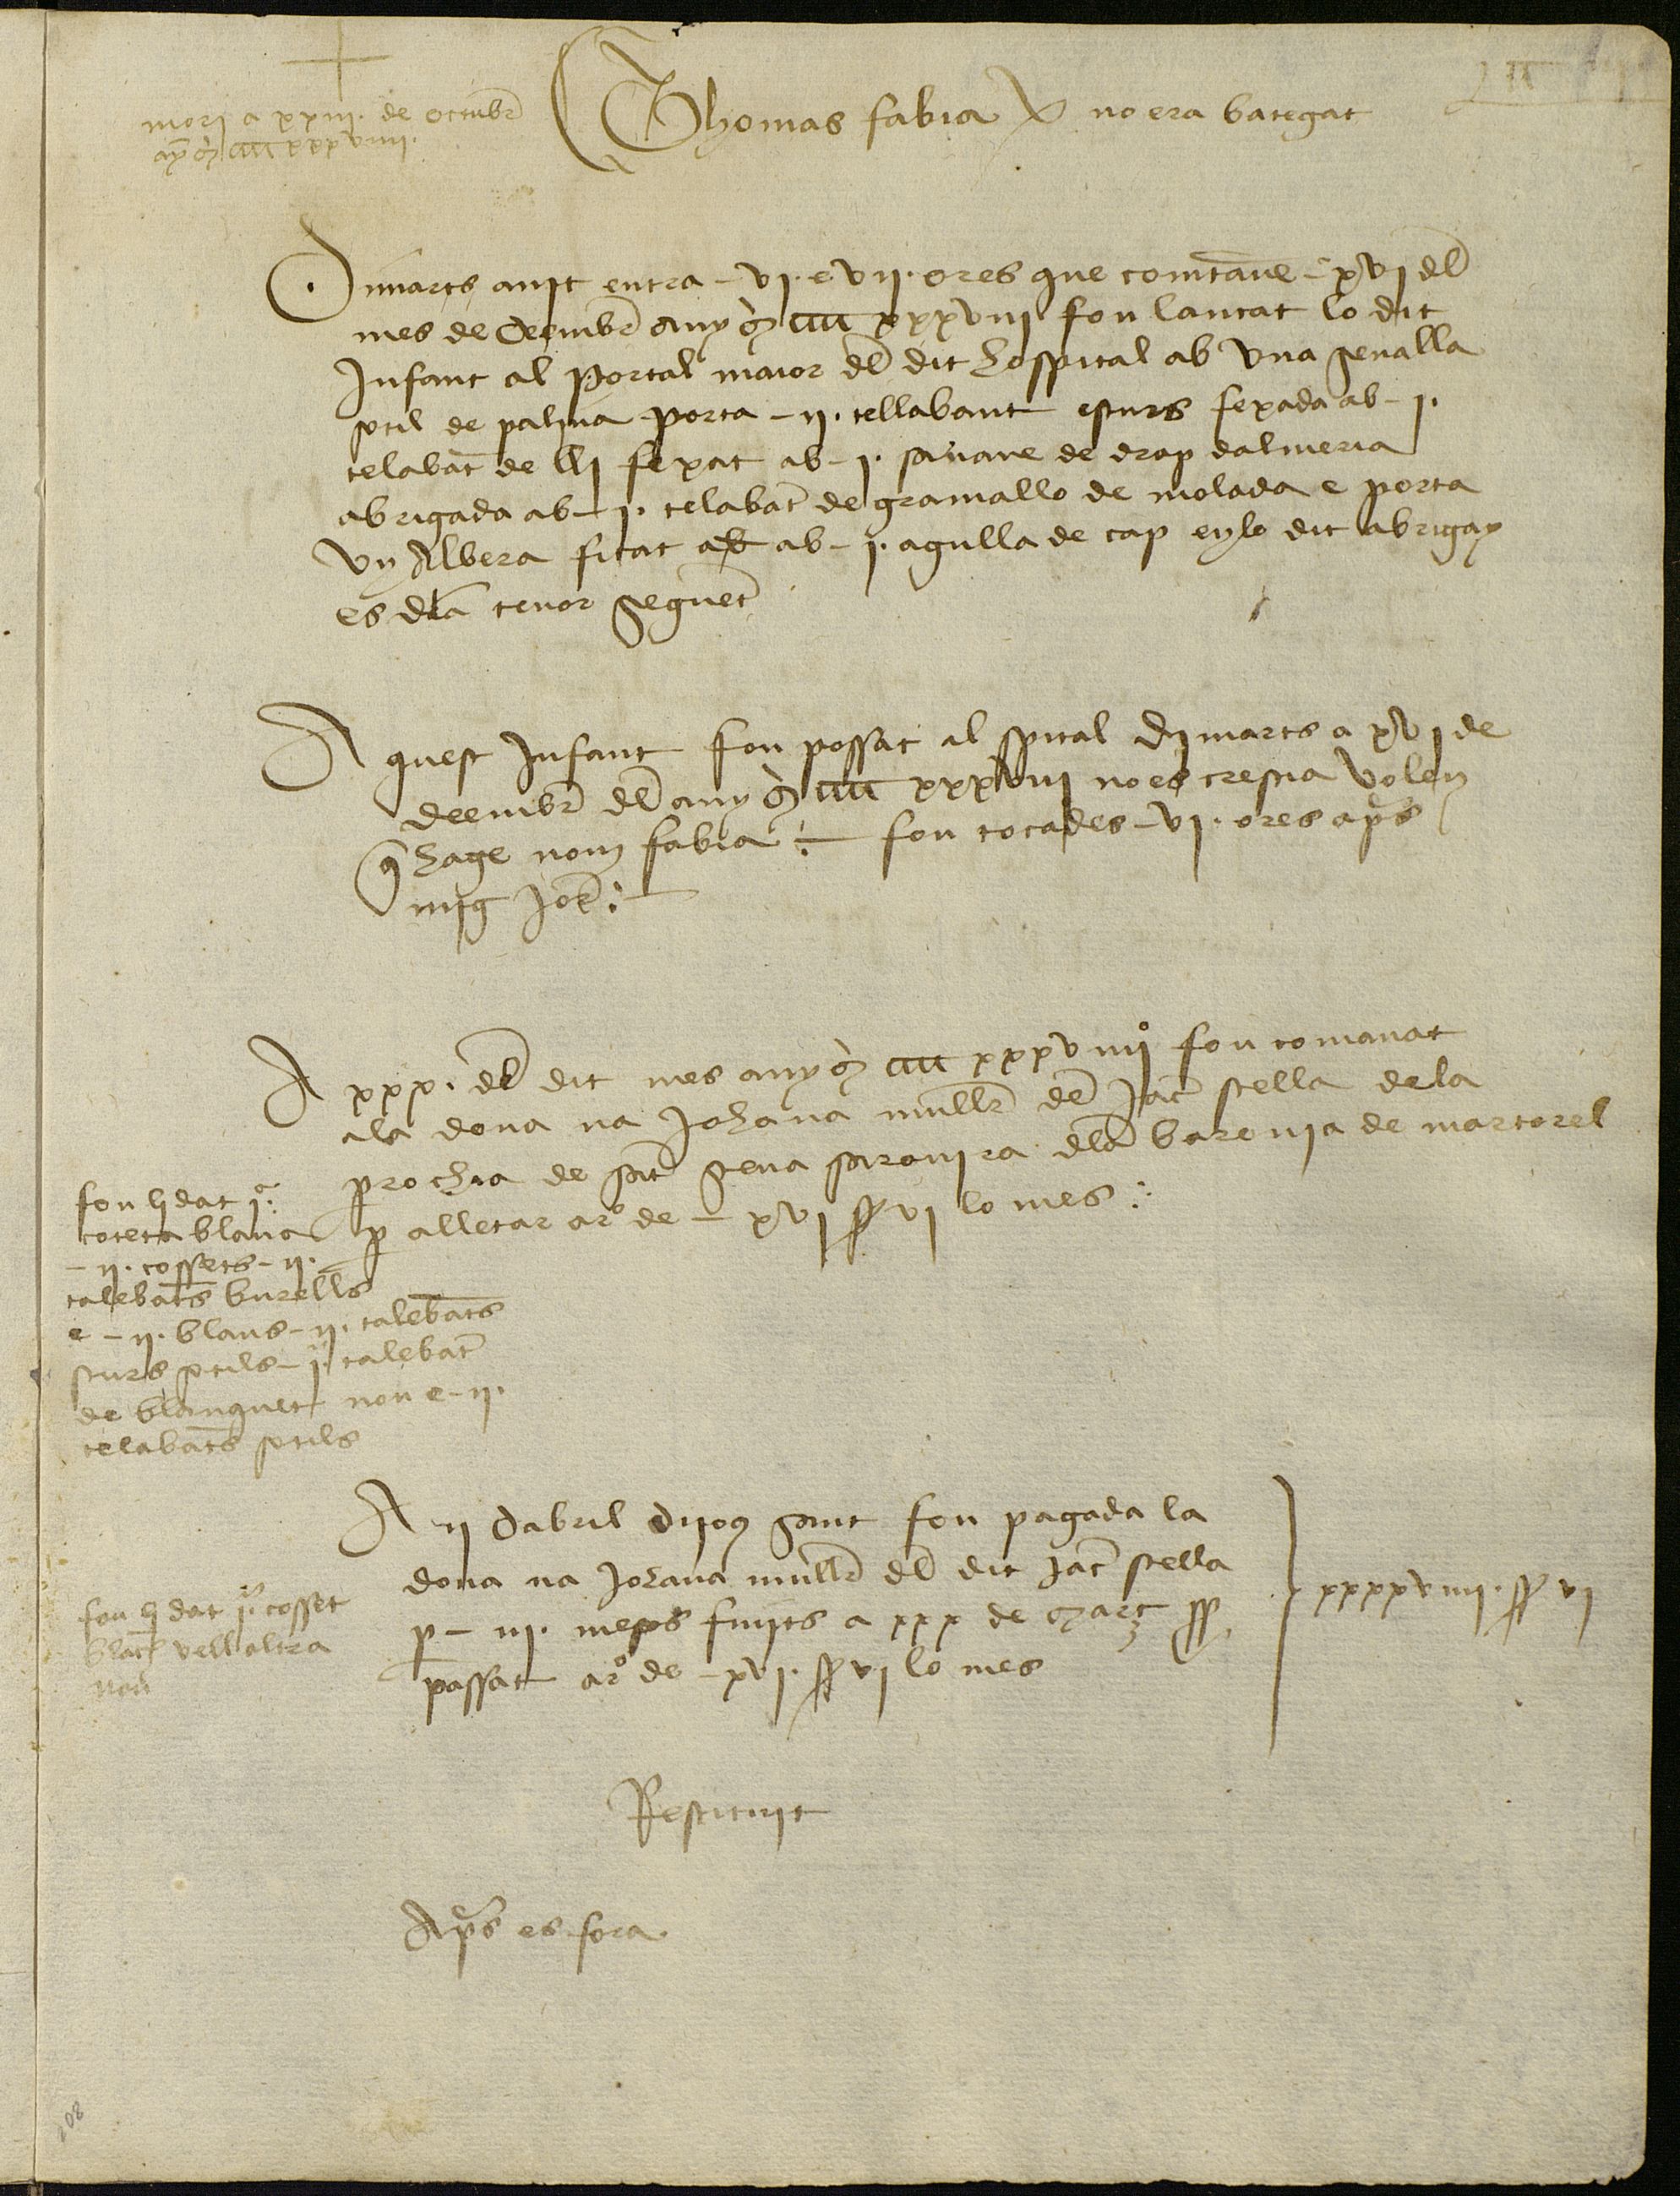 mori a xxiii. de octubr
any M cccc xxxviiii.
Thomas fabia no era bategat
Dimarts anit entra - vi. e vii. ores que comtaue - xvi del
mes de deembr any M cccc xxxviii fou lancat lo dit
Infant al portal maior del dit hospital ab vna senalla
sotil de palma porta - ii. tellabant escurs fexada ab - i.
telabat de lli fexat ab - i. sauane de drap dalmeria
abrigada ab - i. telabat de gramallo de molada e porta
vn Albera ficat ab ab - i. agulla de cap en lo dit abrigay
es dla tenor seguet
Aquest Infant fou possat al spital dimarts a xvi de
deembr del any M cccc xxxviii no es crestia volem
q hage nom fabia fou tocades - vi. ores aps
mig jor
A xxx. del dit mes any M cccc xxxviiii fou comanat
a la dona na Johana mullr de Jac stella de la
prochia de sat steua saronira dla baronia de martorel
p alletar a ro de - xvi ss vi lo mes
fou li dat ia
coteta blaua
- ii. cossets - ii.
talebats burells
e - ii. blaus - ii. talebats
scurs sotils - i. talebat
de blanquet nou e - ii.
telabats sotils
A ii dabril dijous sant fou pagada la
dona na Johana mullr del dit Jac stella
p - iii. mesos finits a xxx de Març pp
passat a ro de - xvi. ss vi lo mes
xxxxviiii. ss vi
fou li dat i. cosset
blach vell altra
nou
Restituit
Aps es fora
108